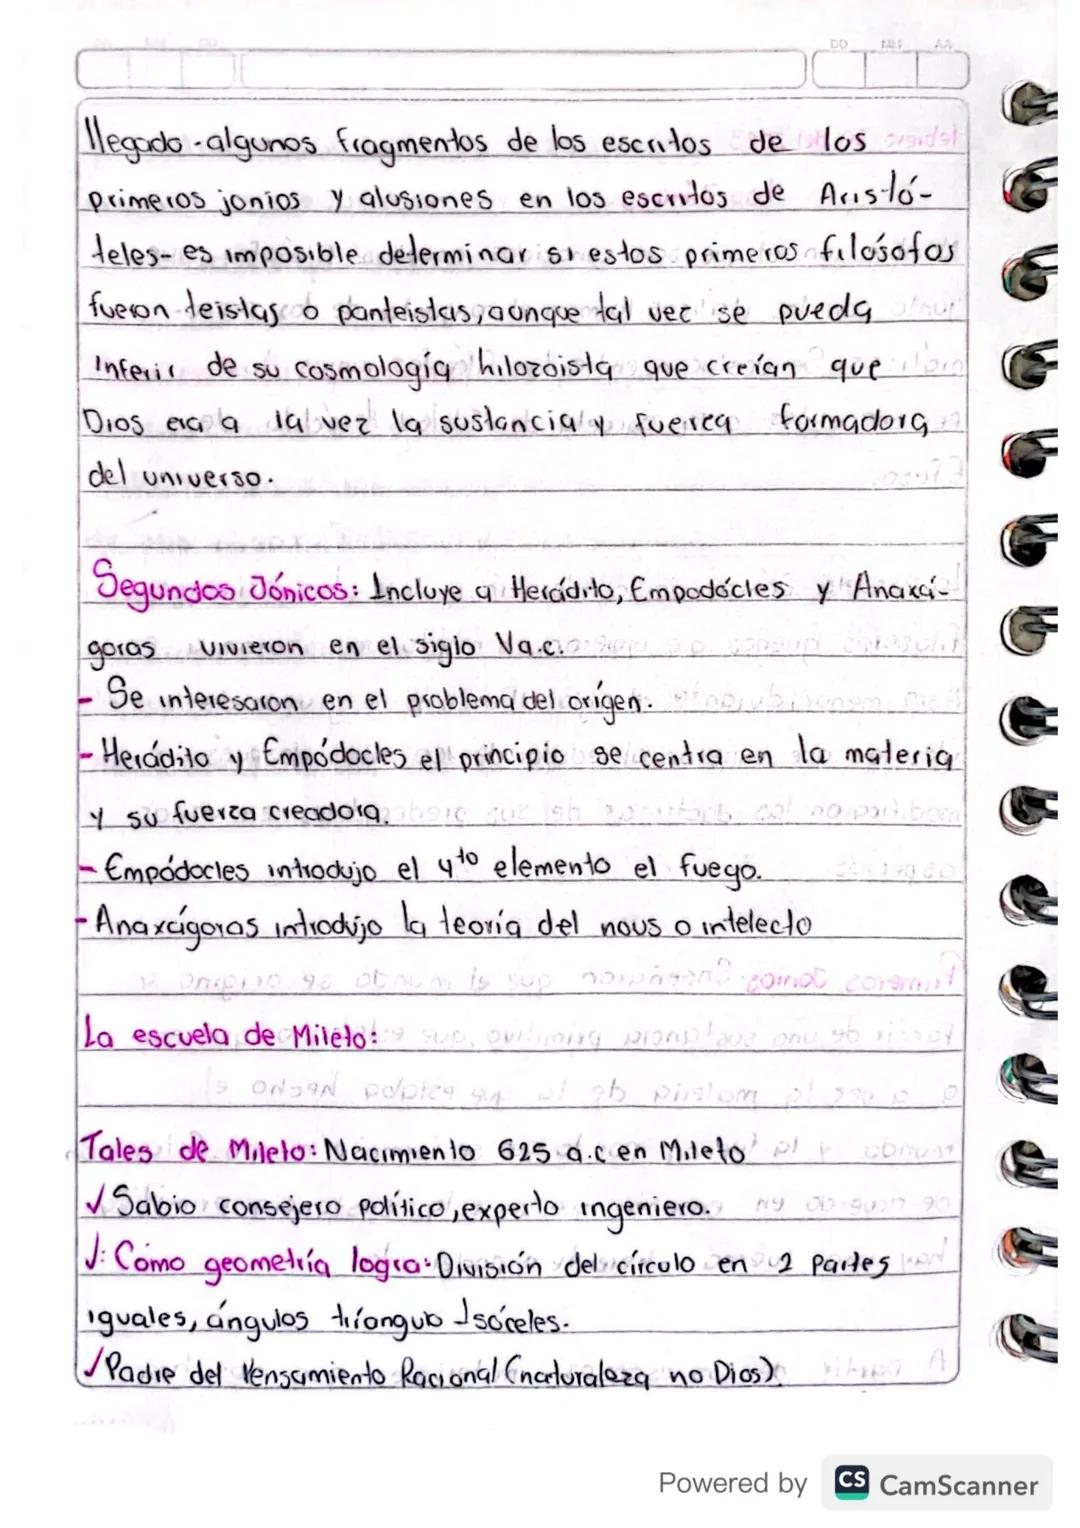 DD MM AA
llegado - algunos fragmentos de los escritos de los
primeros jonios y alusiones en los escritos de Aristó-
teles - es imposible determinar si estos primeros filósofos
fueron teistas o panteistas, aunque tal vez se pueda
Inferir de su cosmología hilozoista que creían que
Dios era a la vez la sustancia y fuerza formadora
del universo.
Segundos Jónicos: Incluye a Herádito, Empodócles y Anaxá-
goras vivieron en el siglo V a.c.
- Se interesaron en el problema del orígen.
- Herádito y Empódocles el principio se centra en la materia
y su fuerza creadora.
- Empódocles introdujo el 4to elemento el fuego.
- Anaxágoras introdujo la teoría del nous o intelecto
La escuela de Mileto:
Tales de Mileto: Nacimiento 625 a.c en Mileto
✓ Sabio consejero político, experto ingeniero.
✓: Como geometría logra: División del círculo en 2 partes
iguales, ángulos tríangulo Isóceles.
✓ Padre del Pensamiento Racional (naturaleza no Dios).
Powered by CS CamScanner